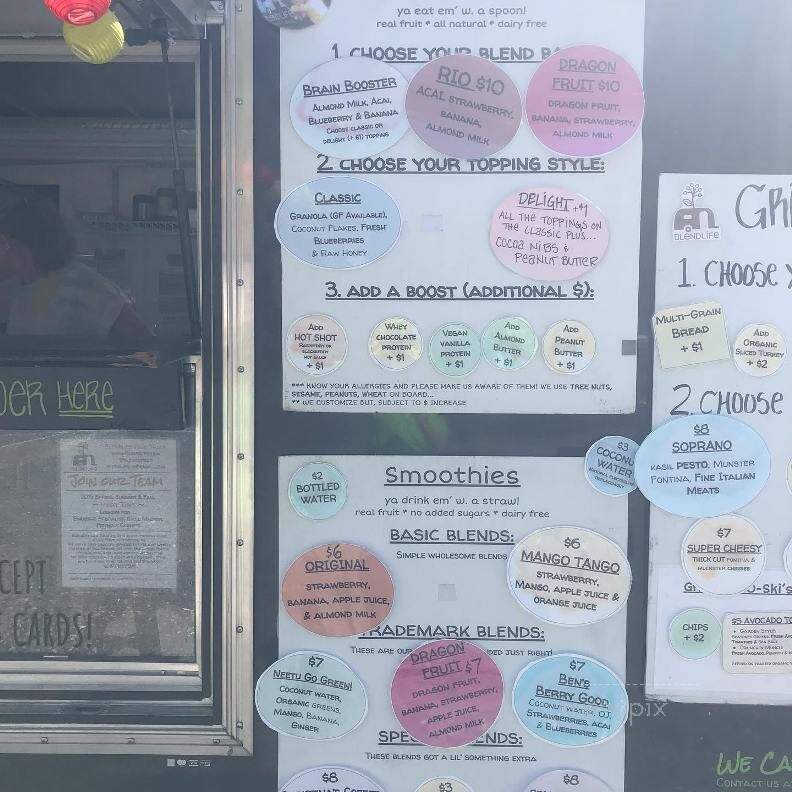 ya eat em' w. a spoon!
real fruit * all natural * dairy free
1. CHOOSE YOUR BLEND
BRAIN BOOSTER
ALMOND MILK, ACAI,
BLUEBERRY & BANANA
CHOOSE CLASSIC OR
DELIGHT (+ $1) TOPPING
RIO $10
ACAI, STRAWBERRY,
BANANA,
ALMOND MILK
DRAGON
FRUIT $10
DRAGON FRUIT,
BANANA, STRAWBERRY,
ALMOND MILK
2. CHOOSE YOUR TOPPING STYLE:
CLASSIC
GRANOLA (GF AVAILABLE),
COCONUT FLAKES, FRESH
BLUEBERRIES
& RAW HONEY
DELIGHT +$1
ALL THE TOPPINGS ON
THE CLASSIC PLUS...
COCOA NIBS &
PEANUT BUTTER
3. ADD A BOOST (ADDITIONAL $):
ADD
HOT SHOT
+ $1
WHEY
CHOCOLATE
PROTEIN
+ $1
VEGAN
VANILLA
PROTEIN
+ $1
ADD
ALMOND
BUTTER
+ $1
ADD
PEANUT
BUTTER
+ $1
*** KNOW YOUR ALLERGIES AND PLEASE MAKE US AWARE OF THEM! WE USE TREE NUTS,
SESAME, PEANUTS, WHEAT ON BOARD...
** WE CUSTOMIZE BUT, SUBJECT TO $ INCREASE
$2
BOTTLED
WATER
Smoothies
ya drink em' w. a straw!
real fruit * no added sugars * dairy free
$3
COCONU
WATER
BASIC BLENDS:
SIMPLE WHOLESOME BLENDS
$6
ORIGINAL
STRAWBERRY,
BANANA, APPLE JUICE,
& ALMOND MILK
$6
MANGO TANGO
STRAWBERRY,
MANGO, APPLE JUICE &
ORANGE JUICE
RADEMARK BLENDS:
THESE ARE OUR
DED JUST RIGHT!
$7
NEETU GO GREEN!
COCONUT WATER,
ORGANIC GREENS,
MANGO, BANANA,
GINGER
DRAGON
FRUIT $7
DRAGON FRUIT,
BANANA, STRAWBERRY,
APPLE JUICE,
ALMOND MILK
$7
BEN'S
BERRY GOOD
COCONUT WATER, OJ,
STRAWBERRIES, ACAI
& BLUEBERRIES
THESE BLENDS GOT A LIL' SOMETHING EXTRA
$8
$3
$8
BLENDLIFE
GRI
1. CHOOSE Y
MULTI-GRAIN
BREAD
+ $1
ADD
ORGANIC
SLICED TURKEY
+ $2
2. CHOOSE
$8
SOPRANO
BASIL PESTO, MUNSTER
FONTINA, FINE ITALIAN
MEATS
$7
SUPER CHEESY
THICK CUT FONTINA &
MUENSTER CHEESES
O-SKI'S
CHIPS
+ $2
$5 AVOCADO TO
WE CA
CONTACT US A
DER HERE
JOIN OUR TEAM
CEPT
CARDS!
pix